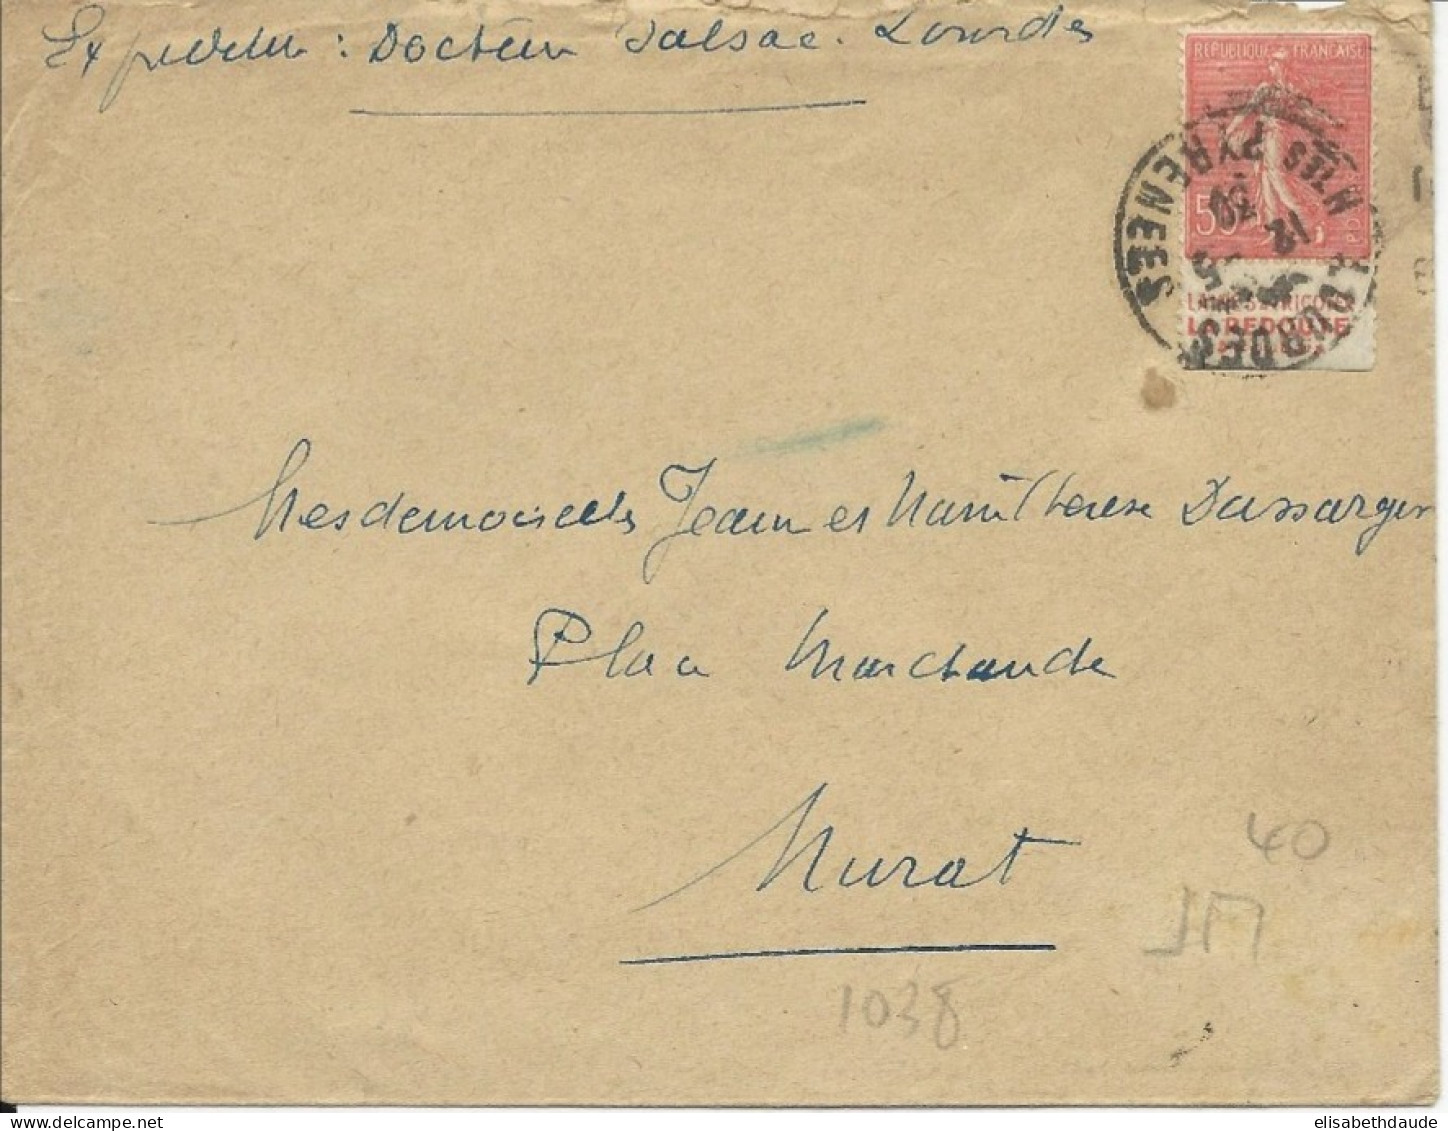 Expediteur : Docteur Dalsac. Lourdes
REPUBLIQUE FRANÇAISE
50
LOURDES
HTES PYRENEES
12
30
LAINES A TRICOTER
LA REDOUTE
Mesdemoiselles Jeanne et Marie Thérèse Dassargues
Place Marchande
Murat
40
1038
elisabethdaude